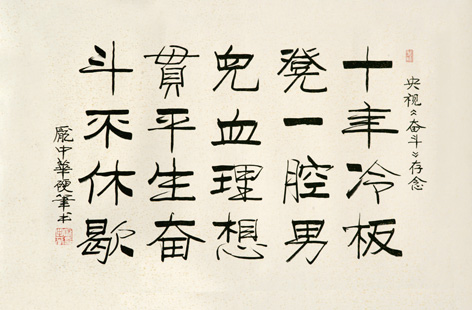 央视《奋斗》存念
十年冷板
凳一腔男
兒血理想
貫平生奋
斗不休歇
龐中華硬筆书